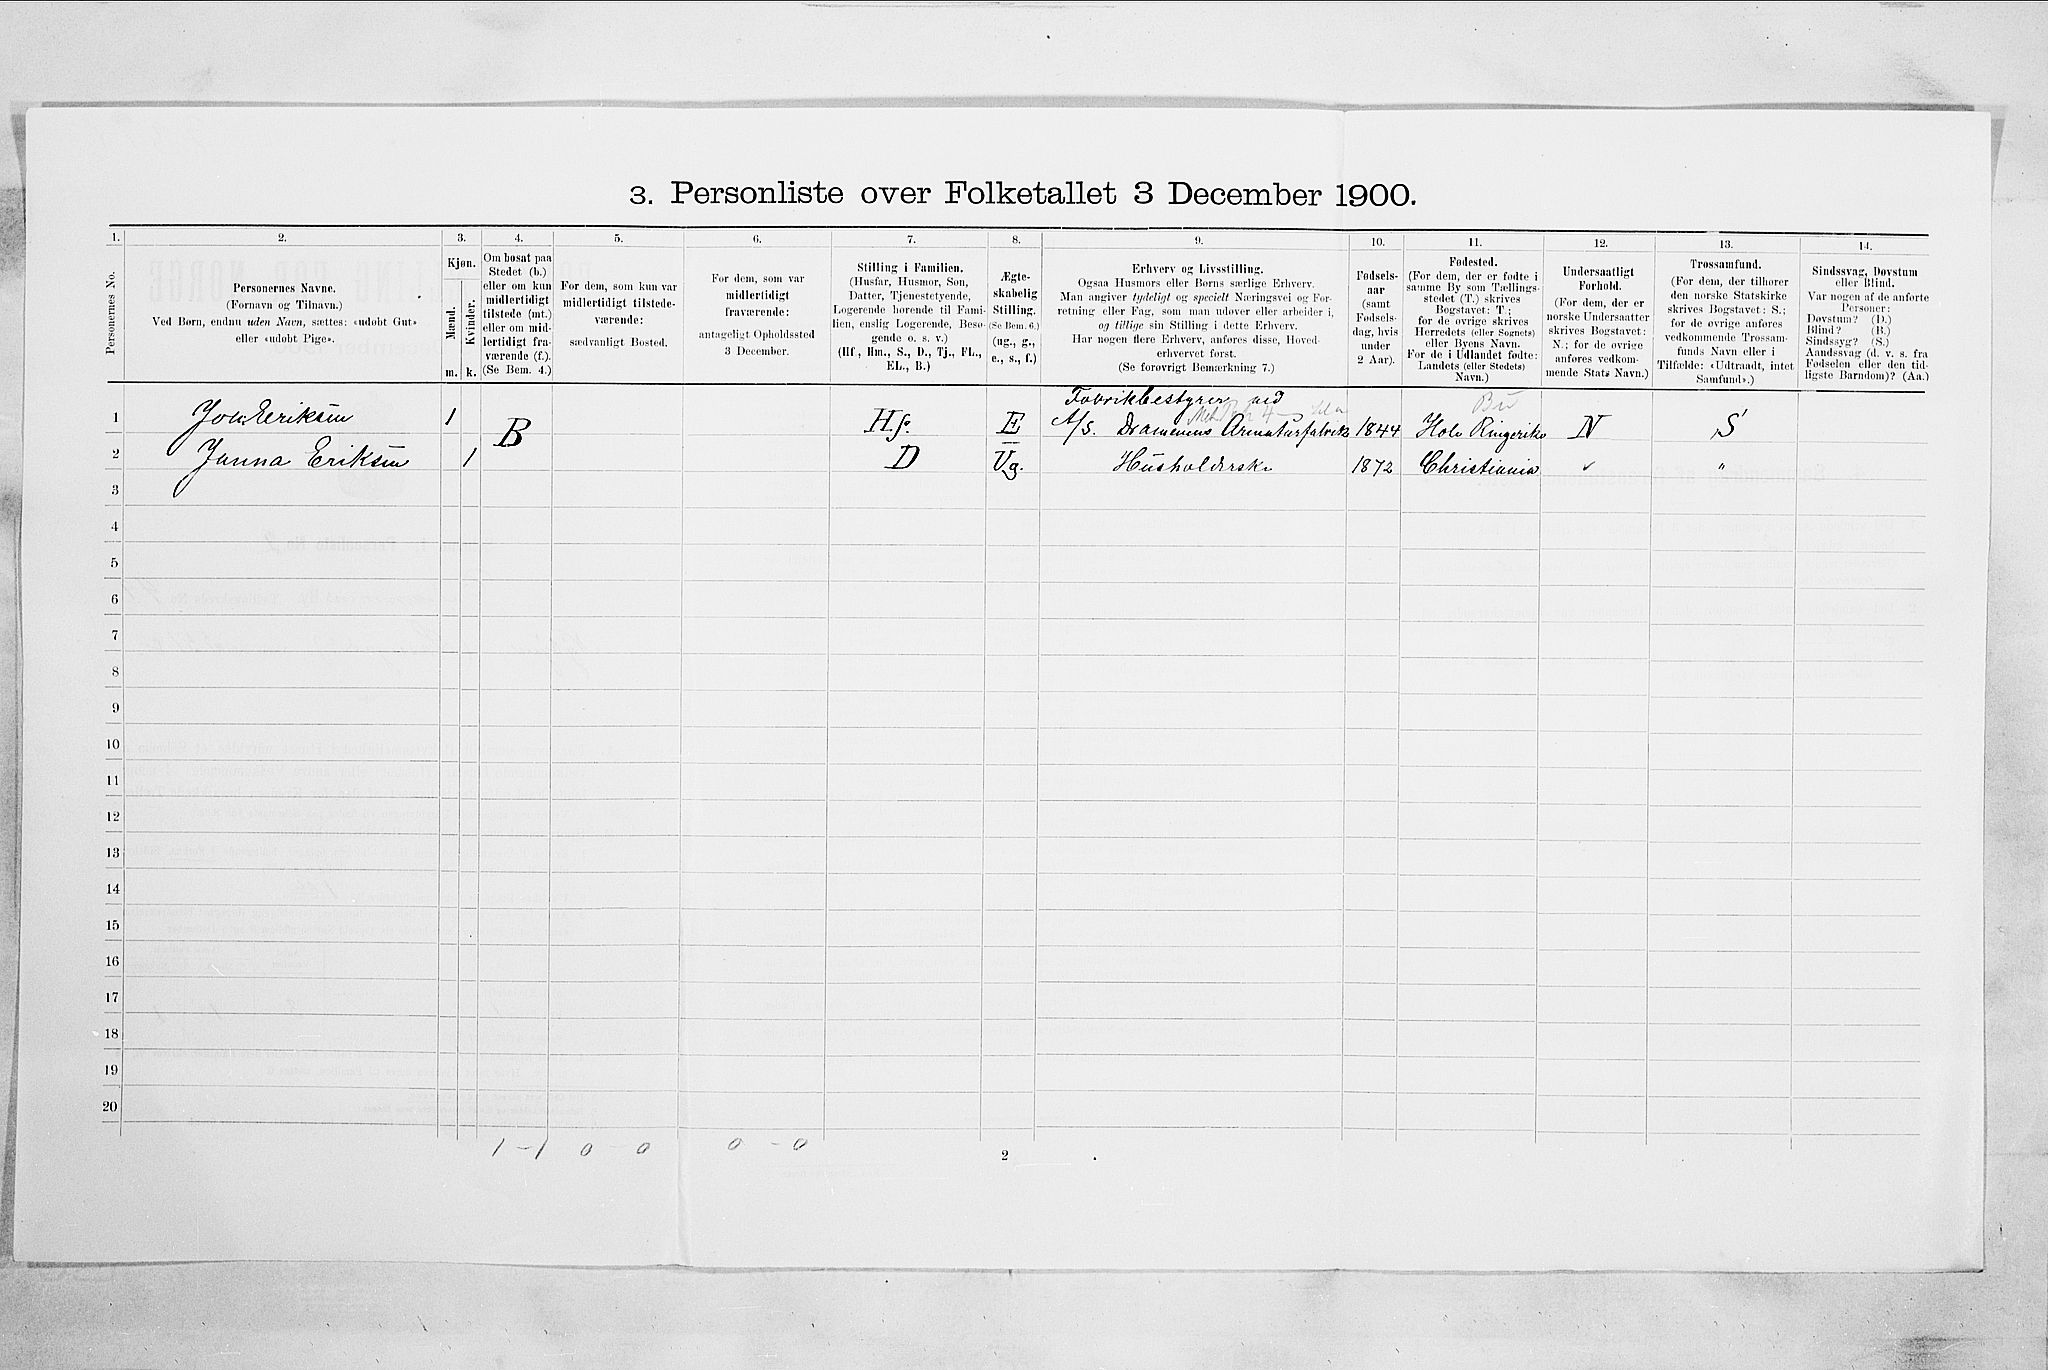 3. Personliste over Folketallet 3 December 1900.
1. 2. 3. 4. 5. 6. 7. 8. 9. 10. 11. 12. 13. 14.
Personernes No.
Personernes Navne.
(Fornavn og Tilnavn.)
Ved Børn, endnu uden Navn, sættes: «udøbt Gut»
eller «udøbt Pige».
Kjøn.
Mænd.
Kvinder.
m. k.
Om bosat paa
Stedet (b.)
eller om kun
midlertidigt
tilstede (mt.)
eller om mid-
lertidigt fra-
værende (f.).
(Se Bem. 4.)
For dem, som kun var
midlertidigt tilstede-
værende:
sædvanligt Bosted.
For dem, som var
midlertidigt
fraværende:
antageligt Opholdssted
3 December.
Stilling i Familien.
(Husfar, Husmor, Søn,
Datter, Tjenestetyende,
Logerende hørende til Fami-
lien, enslig Logerende, Besø-
gende o. s. v.)
(Hf., Hm., S., D., Tj., FL.,
EL., B.)
Ægte-
skabelig
Stilling.
(Se Bem. 6.)
(ug., g.,
e., s., f.)
Erhverv og Livsstilling.
Ogsaa Husmors eller Børns særlige Erhverv.
Man angiver tydeligt og specielt Næringsvei og For-
retning eller Fag, som man udøver eller arbeider i,
og tillige sin Stilling i dette Erhverv.
Har nogen flere Erhverv, anføres disse, Hoved-
erhvervet først.
(Se forøvrigt Bemærkning 7.)
Fødsels-
aar
(samt
Fødsels-
dag, hvis
under
2 Aar).
Fødested.
(For dem, der er fødte i
samme By som Tællings-
stedet (T.) skrives
Bogstavet: T.;
for de øvrige skrives
Herredets (eller Sognets)
eller Byens Navn.
For de i Udlandet fødte:
Landets (eller Stedets)
Navn.)
Undersaatligt
Forhold.
(For dem, der er
norske Undersaatter
skrives Bogstavet:
N.; for de øvrige
anføres vedkom-
mende Stats Navn.)
Trossamfund.
(For dem, der tilhører
den norske Statskirke
skrives Bogstavet: S.;
for de øvrige anføres
vedkommende Trossam-
funds Navn eller i
Tilfælde: «Udtraadt, intet
Samfund».)
Sindssvag, Døvstum
eller Blind.
Var nogen af de anførte
Personer:
Døvstum? (D.)
Blind? (B.)
Sindssyg? (S.)
Aandssvag (d. v. s. fra
Fødselen eller den tid-
ligste Barndom)? (Aa.)
Fabrikbestyrer ved
1 Joh. Eriksen 1 B Hf. E A/S. Drammens Armaturfabrik 1844 Hole Ringerike N S
2 Janna Eriksen 1 D Ug. Husholderske 1872 Christiania "
3
4
5
6
7
8
9
10
11
12
13
14
15
16
17
18
19
20
1-1 0-0 0-0
2